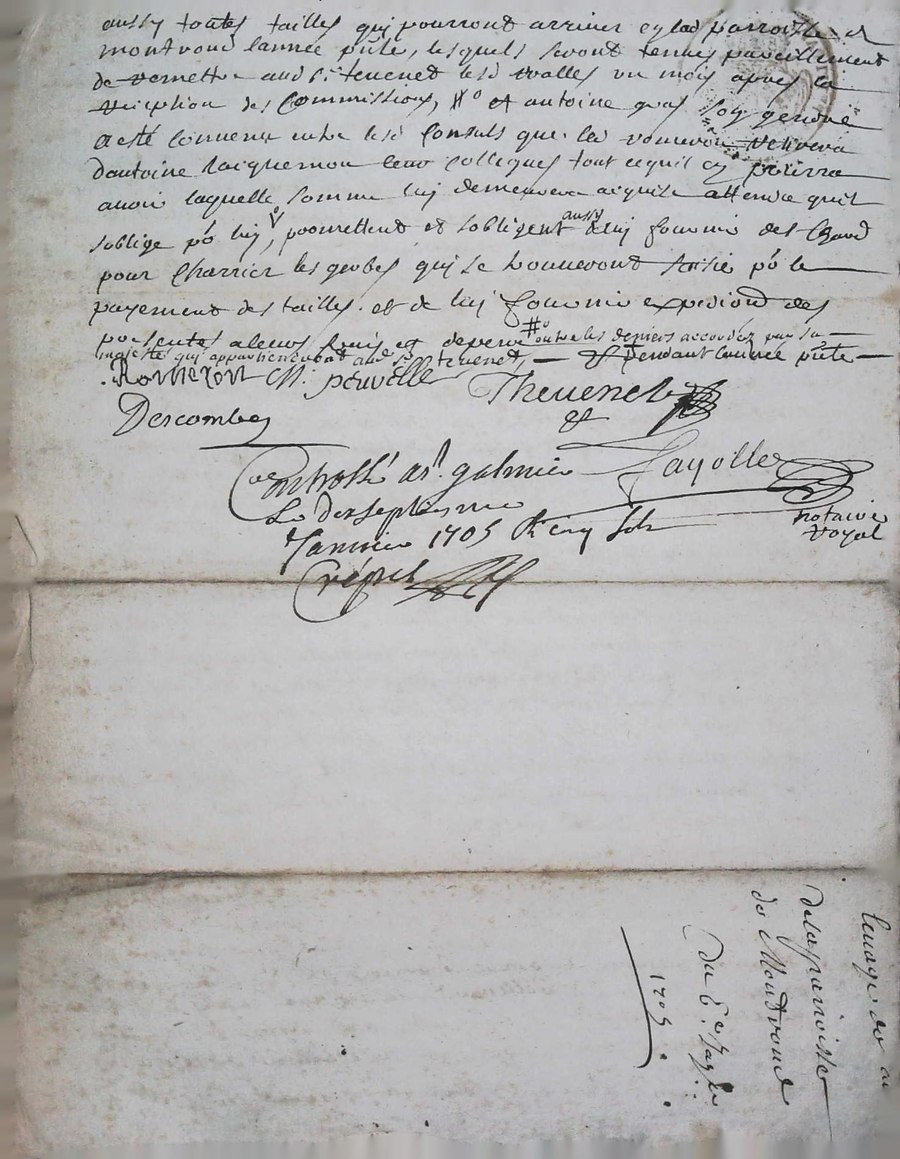 aussy toutes tailles qui pourront arriver en lad parroisse de
montrond lannée pnte, lesquels seront tenus pareillement
de remettre aud sr teuenet lesd rolles un mois apres la
reception des Commissions, # et antoine
a esté convenu entre lesd Consuls que led romeron retirera
dantoine leur collegue tout ce quil en pourra
avoir laquelle somme luy demeurera acquise attendu quil
soblige po luy, promettent et sobligent aussy de luy fournir des
pour Charrier les gerbes qui se trouveront saisie po le
payement des tailles. et de luy fournir expediond des
presentes a leurs frais et depens # outre les deniers accordez par sa
majesté qui appartiendront aud sr teuenet, pendant lannée pnte
Romeron M. peuvelle Theuenet
Descombes &
Controllé a st galmier fayolle
Le dixseptiesme notaire
Janvier 1705 R cinq sols royal
Crépet
leuage de
de la parroisse
de Montrond
du 6e Janv
1705